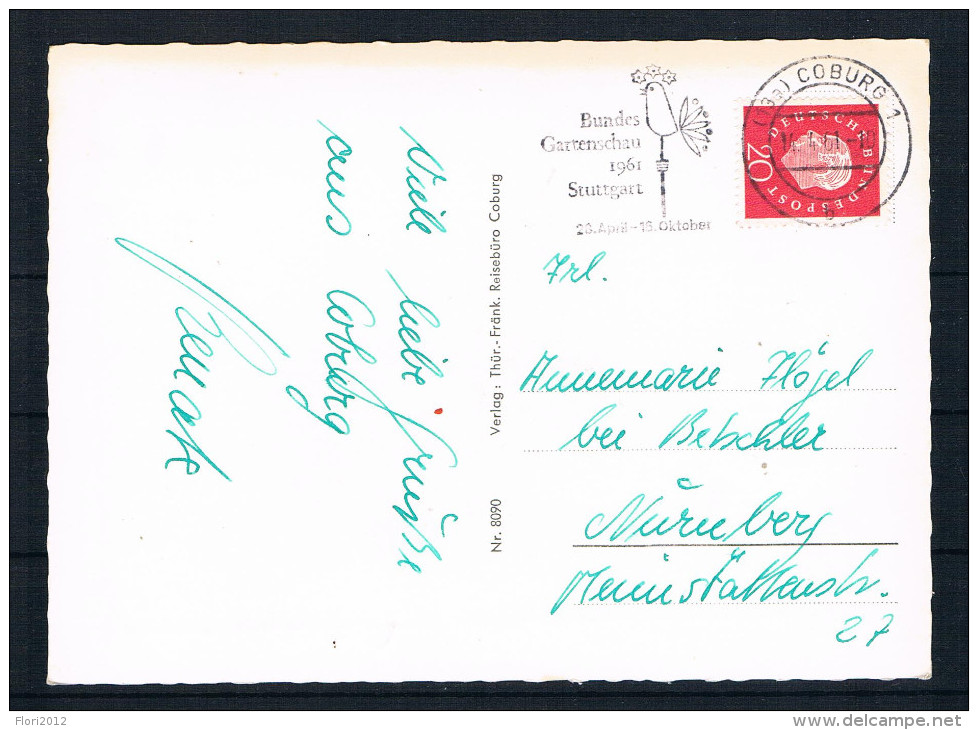 Viele liebe Grüße
aus Coburg
Renate
Verlag: Thür.- Fränk. Reisebüro Coburg
Nr. 8090
Bundes
Gartenschau
1961
Stuttgart
28.April-15.Oktober
(13a) COBURG 1
14.4.61-10
b
DEUTSCHE BUNDESPOST
20
Frl.
Annemarie Högel
bei Betschler
Nürnberg
Heimstättenstr.
27
Flori2012
www.delcampe.net